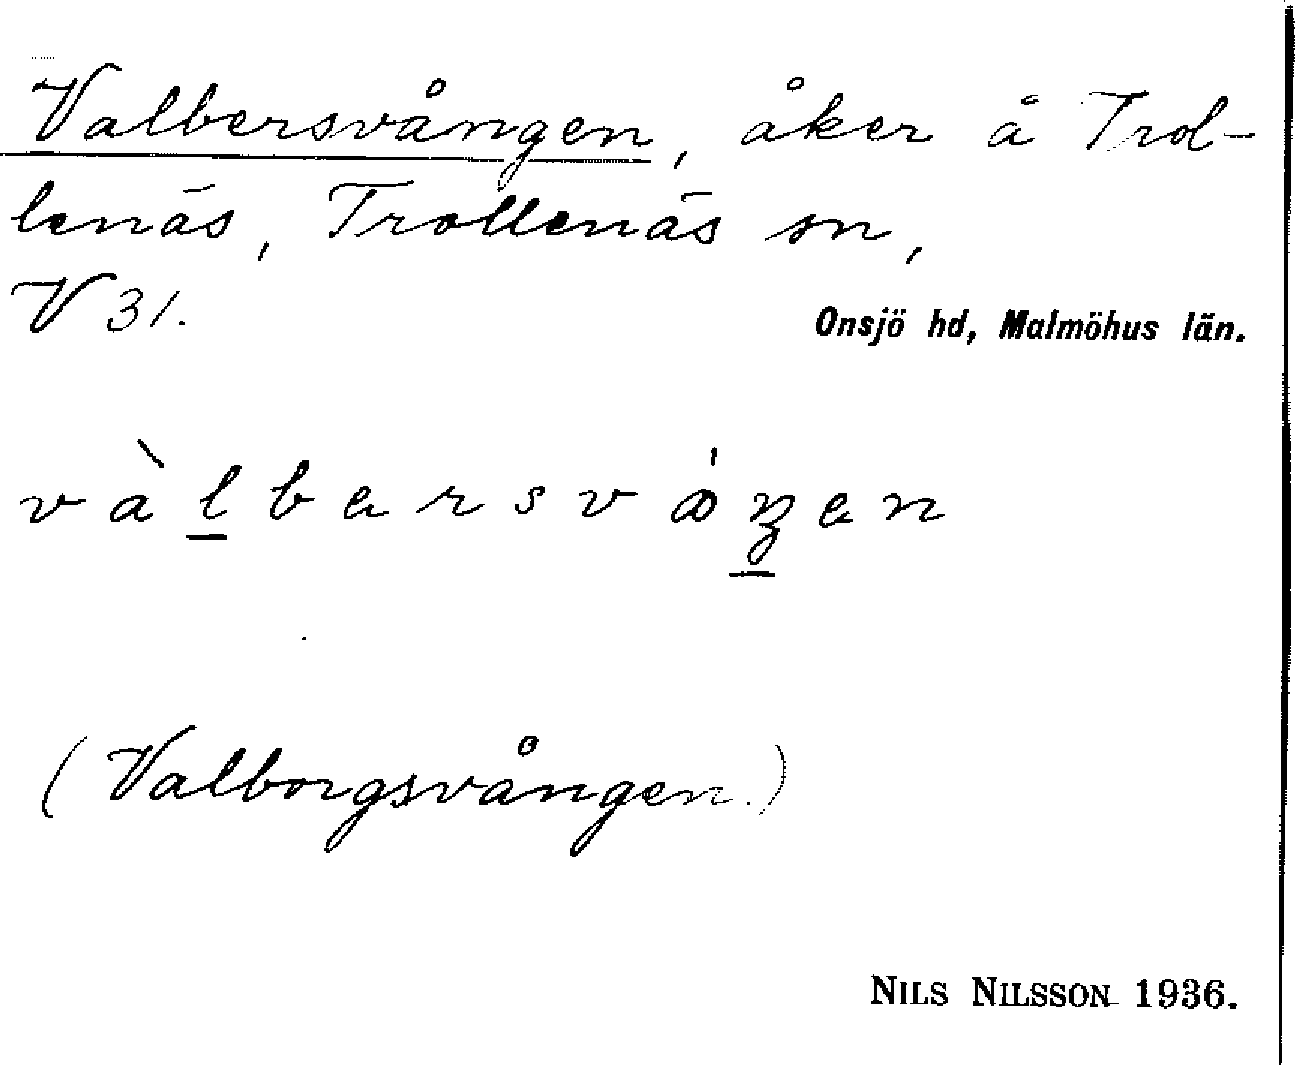 Valbersvången, åker å Trol-
lenäs, Trollenäs sn,
V 31.
Onsjö hd, Malmöhus län.
(Valborgsvången.)
NILS NILSSON 1936.